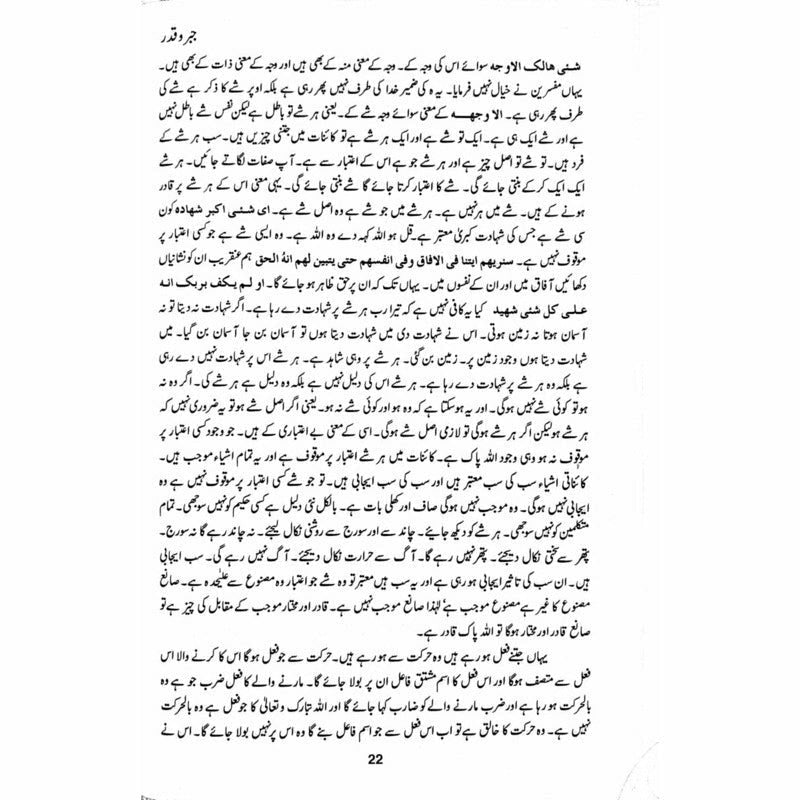 جبر و قدر
شئی ھالک الاوجہ سوائے اس کی وجہ کے۔ وجہ کے معنی منہ کے بھی ہیں اور وجہ کے معنی ذات کے بھی ہیں۔
یہاں مفسرین نے خیال نہیں فرمایا۔ یہ ہ کی ضمیر خدا کی طرف نہیں پھر رہی ہے بلکہ اوپر شے کا ذکر ہے شے کی
طرف پھر رہی ہے۔ الا وجھہ کے معنی سوائے وجہ شے کے۔ یعنی ہر شے تو باطل ہے لیکن نفس شے باطل نہیں
ہے اور شے ایک ہی ہے۔ ایک تو شے ہے اور ایک ہر شے ہے تو کائنات میں جتنی چیزیں ہیں۔ سب ہر شے کے
فرد ہیں۔ تو شے تو اصل چیز ہے اور ہر شے جو ہے اس کے اعتبار سے ہے۔ آپ صفات لگاتے جائیں۔ ہر شے
ایک ایک کر کے بنتی جائے گی۔ شے کا اعتبار کرتا جائے گا شے بنتی جائے گی۔ یہی معنی اس کے ہر شے پر قادر
ہونے کے ہیں۔ شے میں ہر نہیں ہے۔ ہر شے میں جو شے ہے وہ اصل شے ہے۔ ای شئی اکبر شھادہ کون
سی شے ہے جس کی شہادت کبریٰ معتبر ہے۔ قل ھو اللہ کہہ دے وہ اللہ ہے۔ وہ ایسی شے ہے جو کسی اعتبار پر
موقوف نہیں ہے۔ سنریھم ایتنا فی الافاق وفی انفسھم حتی یتبین لھم انہ الحق ہم عنقریب ان کو نشانیاں
دکھائیں آفاق میں اور ان کے نفسوں میں۔ یہاں تک کہ ان پر حق ظاہر ہو جائے گا۔ او لم یکف بربک انہ
علی کل شئی شھید کیا یہ کافی نہیں ہے کہ تیرا رب ہر شے پر شہادت دے رہا ہے۔ اگر شہادت نہ دیتا تو نہ
آسمان ہوتا نہ زمین ہوتی۔ اس نے شہادت دی میں شہادت دیتا ہوں تو آسمان بن جا آسمان بن گیا۔ میں
شہادت دیتا ہوں وجود زمین پر۔ زمین بن گئی۔ ہر شے پر وہی شاہد ہے۔ ہر شے اس پر شہادت نہیں دے رہی
ہے بلکہ وہ ہر شے پر شہادت دے رہا ہے۔ ہر شے اس کی دلیل نہیں ہے بلکہ وہ دلیل ہے ہر شے کی۔ اگر وہ نہ
ہو تو کوئی شے نہیں ہوگی۔ اور یہ ہو سکتا ہے کہ وہ ہو اور کوئی شے نہ ہو۔ یعنی اگر اصل شے ہو تو یہ ضروری نہیں کہ
ہر شے ہو لیکن اگر ہر شے ہوگی تو لازمی اصل شے ہوگی۔ اسی کے معنی بے اعتباری کے ہیں۔ جو وجود کسی اعتبار پر
موقوف نہ ہو وہی وجود اللہ پاک ہے۔ کائنات میں ہر شے اعتبار پر موقوف ہے اور یہ تمام اشیاء موجب ہیں۔
کائناتی اشیاء سب کی سب معتبر ہیں اور سب کی سب ایجابی ہیں۔ تو جو شے کسی اعتبار پر موقوف نہیں ہے وہ
ایجابی نہیں ہوگی۔ وہ موجب نہیں ہوگی صاف اور کھلی بات ہے۔ بالکل نئی دلیل ہے کسی حکیم کو نہیں سوجھی۔ تمام
متکلمین کو نہیں سوجھی۔ ہر شے کو دیکھ جائیے۔ چاند سے اور سورج سے روشنی نکال لیجئے۔ نہ چاند رہے گا نہ سورج۔
پتھر سے سختی نکال دیجئے۔ پتھر نہیں رہے گا۔ آگ سے حرارت نکال دیجئے۔ آگ نہیں رہے گی۔ سب ایجابی
ہیں۔ ان سب کی تاثیر ایجابی ہو رہی ہے اور یہ سب ہیں معتبر تو وہ شے جو اعتبار وہ مصنوع سے علیٰحدہ ہے۔ صانع
مصنوع کا غیر ہے مصنوع موجب ہے' لہٰذا صانع موجب نہیں ہے۔ قادر اور مختار موجب کے مقابل کی چیز ہے تو
صانع قادر اور مختار ہوگا تو اللہ پاک قادر ہے۔
یہاں جتنے فعل ہو رہے ہیں وہ حرکت سے ہو رہے ہیں۔ حرکت سے جو فعل ہوگا اس کا کرنے والا اس
فعل سے متصف ہوگا اور اس فعل کا اسم مشتق فاعل ان پر بولا جائے گا۔ مارنے والے کا فعل ضرب جو ہے وہ
بالحرکت ہو رہا ہے اور ضرب مارنے والے کو ضارب کہا جائے گا اور اللہ تبارک و تعالیٰ کا جو فعل ہے وہ بالحرکت
نہیں ہے۔ وہ حرکت کا خالق ہے تو اب اس فعل سے جو اسم فاعل بنے گا وہ اس پر نہیں بولا جائے گا۔ اس نے
22